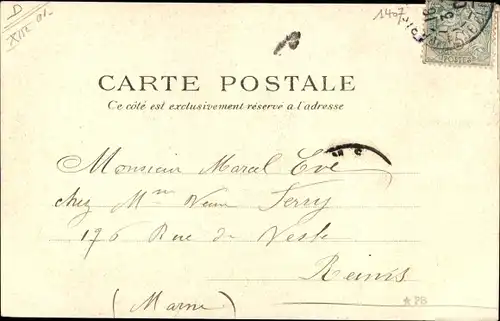 D
1407
POSTES
CARTE POSTALE
Ce côté est exclusivement réservé a l'adresse
Monsieur Marcel Eve
chez Mme Veuve Ferry
176 Rue de Vesle
Reims
(Marne)
★PB